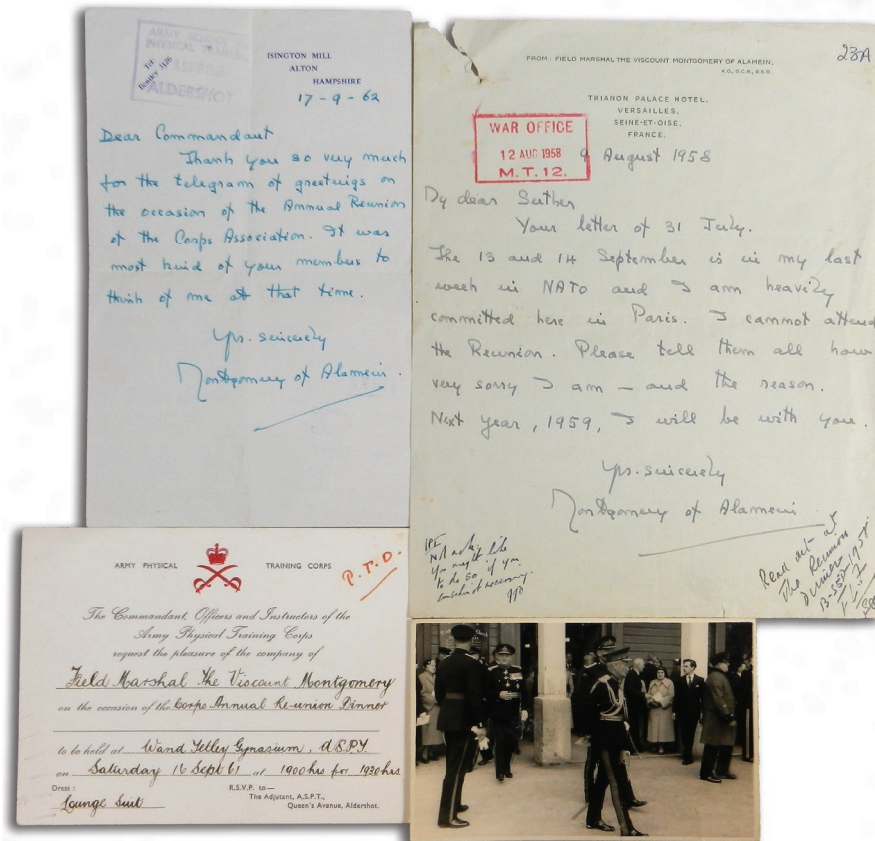 ARMY SCHOOL OF
PHYSICAL TRAINING
ALDERSHOT
ISINGTON MILL
ALTON
HAMPSHIRE
17-9-62
Dear Commandant
Thank you so very much
for the telegram of greetings on
the occasion of the Annual Reunion
of the Corps Association. It was
most kind of your members to
think of me at that time.
Yrs. sincerely
Montgomery of Alamein.
23A
FROM: FIELD MARSHAL THE VISCOUNT MONTGOMERY OF ALAMEIN,
K.G., G.C.B., D.S.O.
TRIANON PALACE HOTEL,
VERSAILLES,
SEINE-ET-OISE,
FRANCE.
WAR OFFICE
12 AUG 1958
M.T.12.
9 August 1958
My dear
Your letter of 31 July.
The 13 and 14 September is in my last
week in NATO and I am heavily
committed here in Paris. I cannot attend
the Reunion. Please tell them all how
very sorry I am – and the reason.
Next year, 1959, I will be with you.
Yrs. sincerely
Montgomery of Alamein
You might like
to do so if you
consider it necessary.
Read out at
The Reunion
Dinner
ARMY PHYSICAL TRAINING CORPS
P.T.O.
The Commandant, Officers and Instructors of the
Army Physical Training Corps
request the pleasure of the company of
Field Marshal The Viscount Montgomery
on the occasion of the Corps Annual Re-union Dinner
to be held at Wand Tetley Gymnasium, A.S.P.T.
on Saturday 16 Sept 61 at 1900 hrs for 1930 hrs
Dress:
Lounge Suit
R.S.V.P. to—
The Adjutant, A.S.P.T.,
Queen's Avenue, Aldershot.